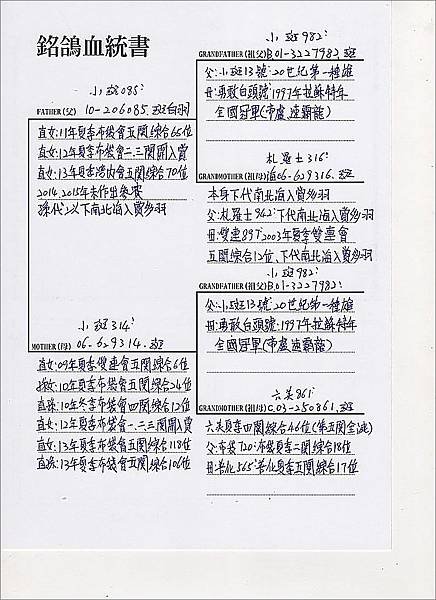 銘鴿血統書
小斑085:
FATHER(父) 10-206085.斑白羽
直女:11年夏季布袋會五關綜合65位
直女:12年夏季布袋會二.三關開入賞
直女:13年夏季港內會五關綜合70位
2014.2015年未作出參賽
孫代以下南北海入賞多羽
小斑314:
MOTHER(母) 06-629314.斑
直女:09年夏季雙連會五關綜合6位
10年夏季布袋會五關綜合24位
直孫:10年冬季布袋會四關綜合12位
直女:12年夏季布袋會一.二.三關開入賞
直女:13年夏季布袋會五關綜合118位
直孫:13年夏季布袋會五關綜合106位
小斑982:
GRANDFATHER(祖父)B.01-3227982.斑
父:小斑13號:20世紀第一種雄
母:勇敢白頭號:1997年拉蘇特年
全國冠軍(帝盧.速霸龍)
札羅士316:
GRANDMOTHER(祖母)海06-629316.斑
本身下代南北海入賞多羽
父:札羅士942:下代南北海入賞多羽
母:雙連897:2003年夏季雙連會
五關綜合12位、下代南北海入賞多羽
小斑982:
GRANDFATHER(祖父)B.01-3227982.
父:小斑13號:20世紀第一種雄
母:勇敢白頭號:1997年拉蘇特年
全國冠軍(帝盧.速霸龍)
六美861:
GRANDMOTHER(祖母)C.03-250861.斑
六美夏季四關綜合46位(第五關全滅)
父:布袋720:布袋夏季二關綜合18位
母:彰化565:彰化夏季五關綜合17位